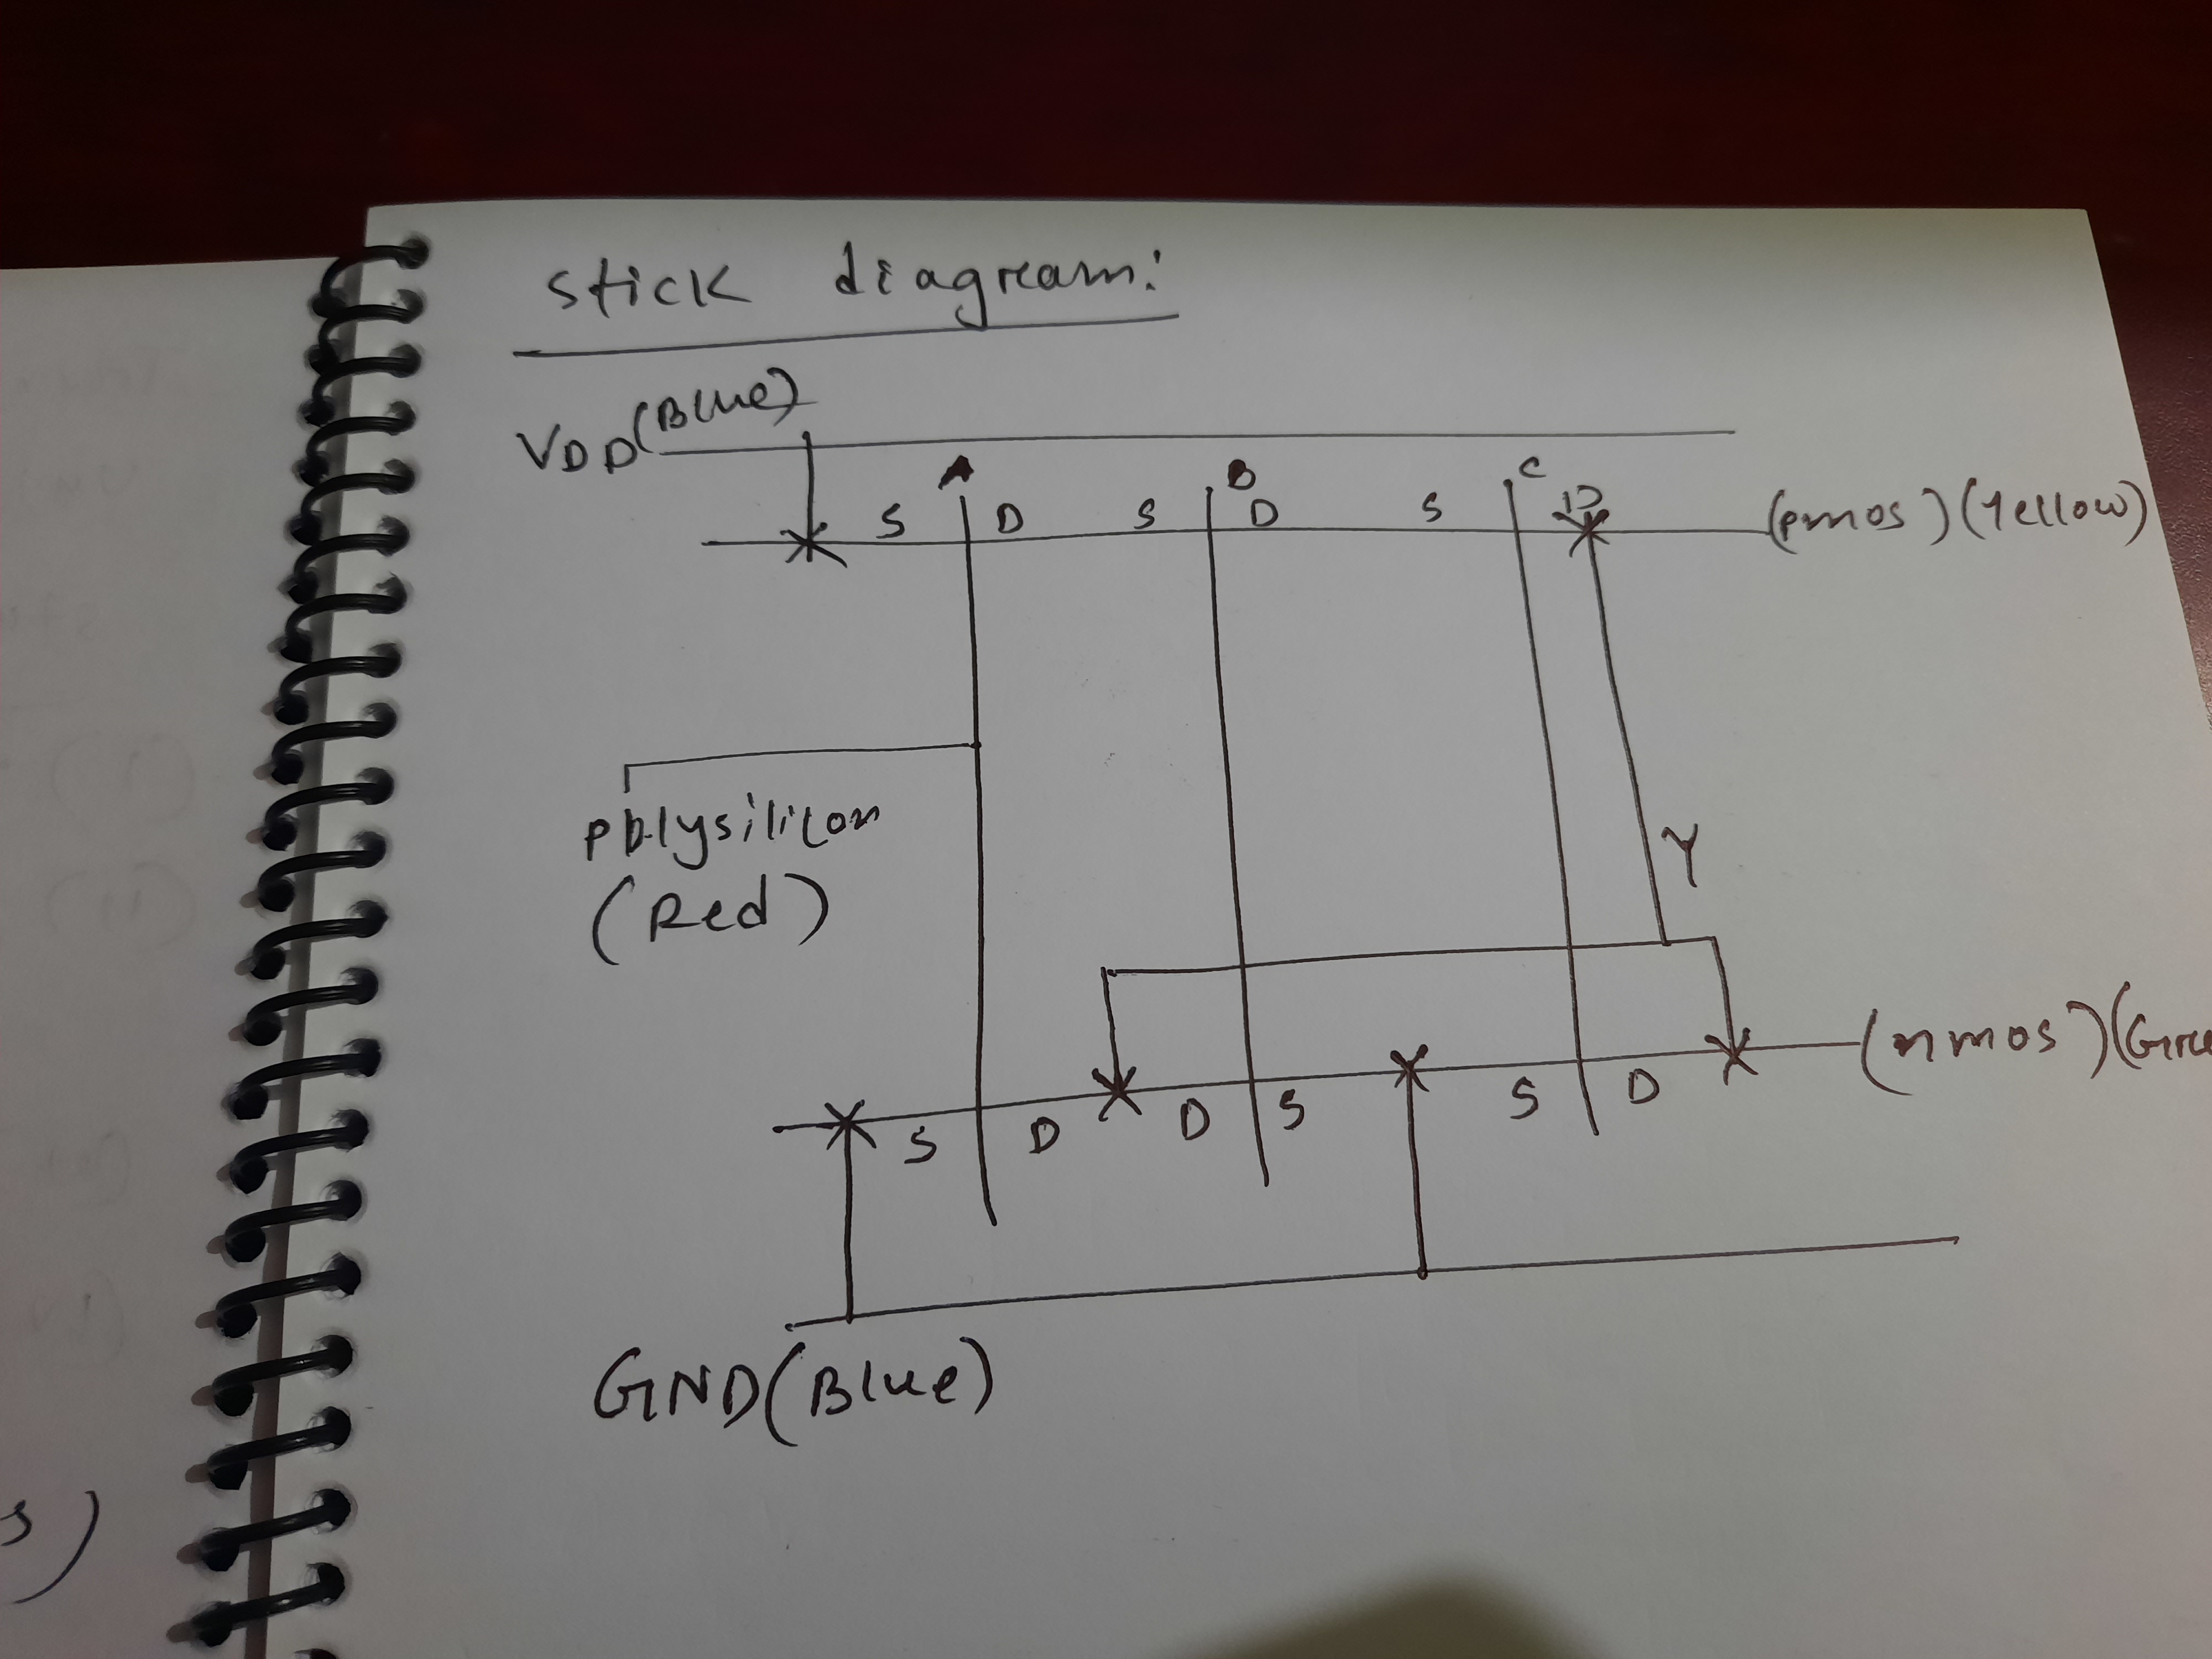 stick diagream:
VDD(Blue)
A B C
S D S D S D (pmos)(Yellow)
polysilicon
(Red)
Y
(nmos)(Gree
S D D S S D
GND(Blue)
s)